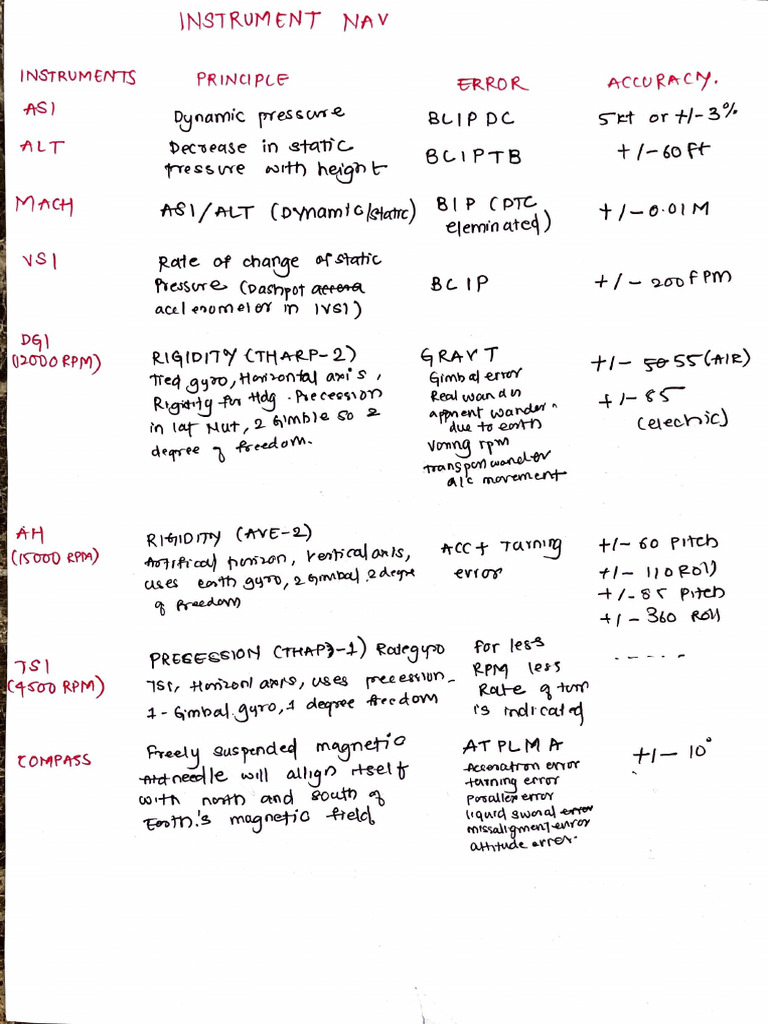 INSTRUMENT NAV
INSTRUMENTS PRINCIPLE ERROR ACCURACY.
ASI Dynamic pressure BCIPDC 5kt or +/-3%
ALT Decrease in static pressure with height BCIPTB +/-60ft
MACH ASI/ALT (Dynamic/static) BIP (DTC eleminated) +/-0.01M
VSI Rate of change of static
Pressure (Dashpot
accelerometer in IVSI) BCIP +/- 200FPM
DGI
(12000 RPM)
RIGIDITY (THARP-2)
Tied gyro, Horizontal axis,
Rigitity for Hdg. Precession
in lat Nut, 2 Gimble so 2
degree of freedom.
GRAVT
Gimbal error
Real wander
apparent wander
due to earth
Varing rpm
transport wander
a/c movement
+/- 55 (AIR)
+/- 85
(electric)
AH
(15000 RPM)
RIGIDITY (AVE-2)
Artifical horizon, Vertical axis,
uses earth gyro, 2 Gimbal 2 degre
of freedom
ACC + Turning
error
+/- 60 Pitch
+/- 110 Roll
+/- 85 Pitch
+/- 360 Roll
TSI
(4500 RPM)
PRESESSION (THAP-1) Rategyro
TSI, Horizonl axis, uses precession
1-Gimbal gyro, 1 degree freedom
for less
RPM less
Rate of turn
is indicated
------
COMPASS
Freely suspended magnetic
needle will allign itself
with north and south of
Earth's magnetic field
ATPLMA
Acceration error
turning error
Parallex error
liquid error
missaligment error
attitude error.
+/- 10°